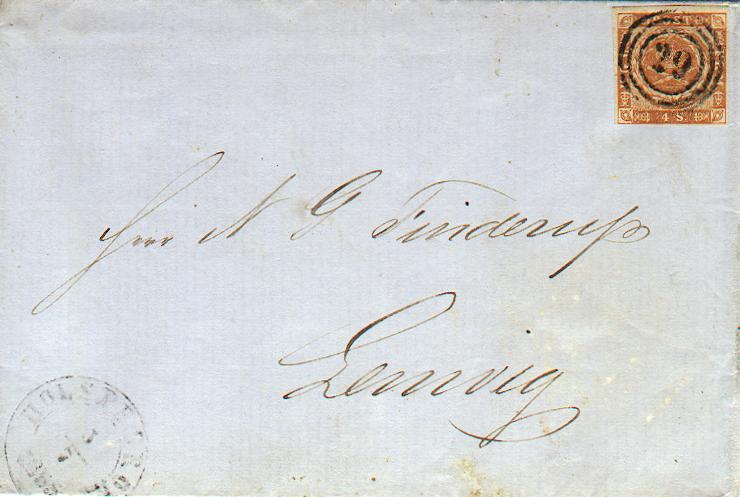 POST
29
4 S
Herr N G Tinderup
Lemvig
HOLST